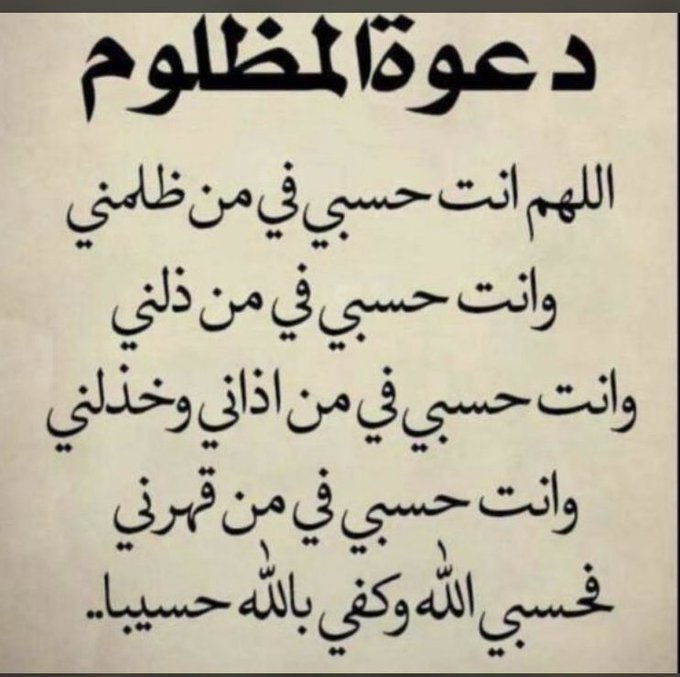 دعوة المظلوم
اللهم انت حسبي في من ظلمني
وانت حسبي في من ذلني
وانت حسبي في من اذاني وخذلني
وانت حسبي في من قهرني
فحسبي الله وكفي بالله حسيبا..